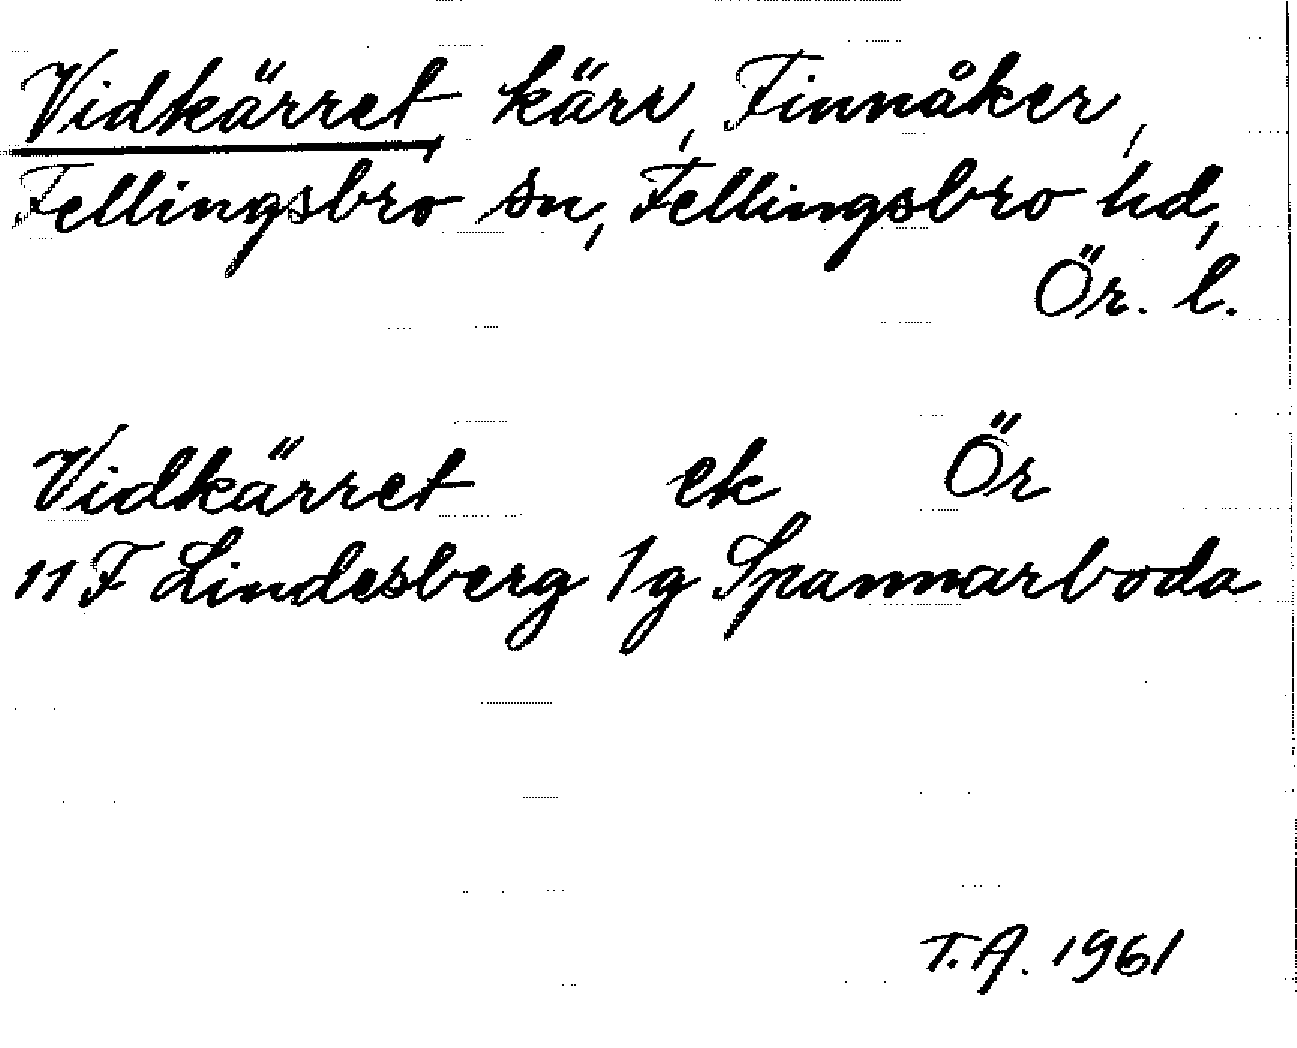 Vidkärret, kärr, Finnåker,
Fellingsbro sn, Fellingsbro hd,
Ör. l.
Vidkärret ek Ör
11 F Lindesberg 1g Spannarboda
T.A. 1961